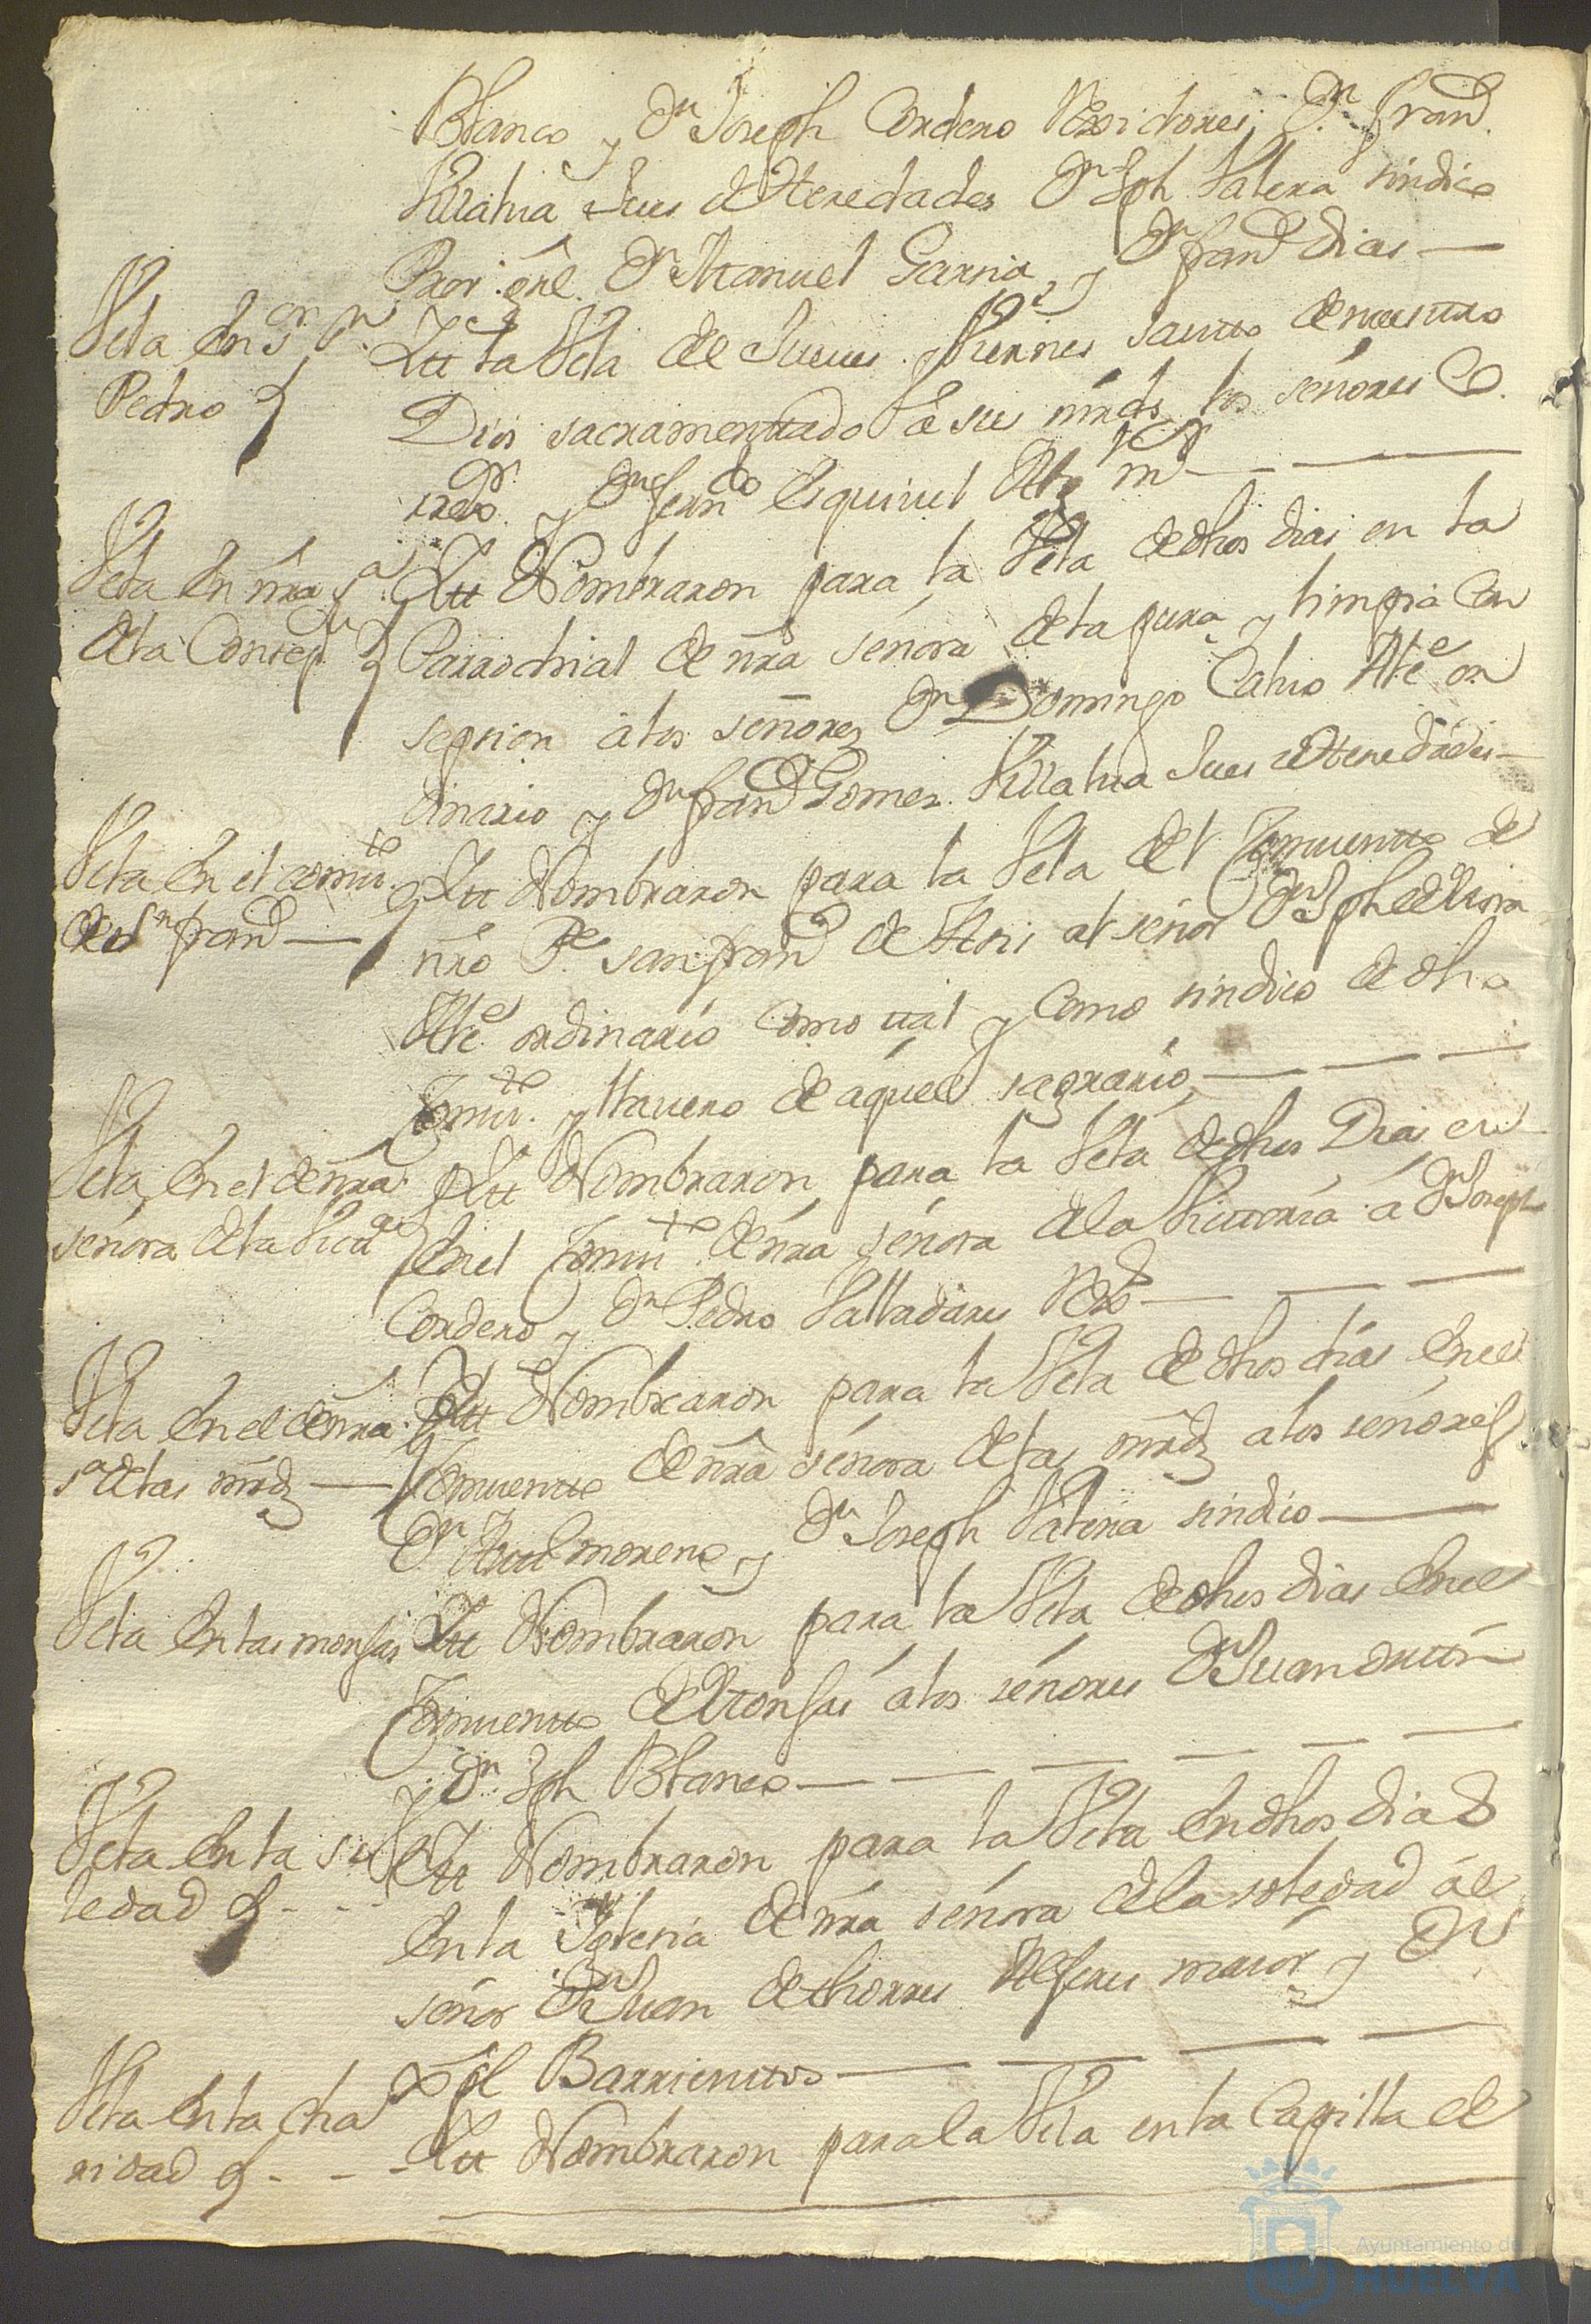 Blanco y Dn Joseph Cordero Rexidores, Dn Franco
Villalua Jues de Heredades Dn Jph Valera sindico
Pror. gnl. Dn Manuel Garsia, y Dn Franco Dias —
Vela En Sn
Pedro
Itt la Vela de Jueues y Viernes santo de nuestro
Dios sacramentado a sus mrds los señores
y Dn Ferndo Esquiuel
Vela En nra Sa
de la Consepn
Itt Nombraron para la Vela de dhos dias en la
Parrochial de nra señora de la pura y limpia Con
sepsion a los señores Dn Domingo Caluo Alte or
dinario y Dn Franco Gomez Villalua Jues de Heredades —
Vela En el comuto
de Sn Franco —
Itt Nombraron para la Vela del Conuento de
nro Pe san Franco de Asis al señor Dn Jph de
Alte ordinario como tal y como sindico de dho
Conuto y llauero de aquel sagrario — — —
Vela En el de nra
señora de la Victa
Itt Nombraron para la Vela de dhos Dias en
En el Conuto de nra señora de la Victoria a Dn Joseph
Cordero y Dn Pedro Valladares — — —
Vela En el de nra
sa de las mrds —
Itt Nombraron para la Vela de dhos dias En el
Conuento de nra señora de las mrds a los señores
Dn moreno y Dn Joseph Valera sindico —
Vela En las monjas
Itt Nombraron para la Vela de dhos dias En el
Conuento de Monjas a los señores Dn Juan
y Dn Jph Blanco — — — — — —
Vela En la so
ledad - - -
Itt Nombraron para la Vela En dhos dias
En la Iglesia de nra señora de la soledad al
señor Dn Juan de thorres Alferes maior y Dn
Barrientos — — — —
Vela En la cha
ridad - - -
Itt Nombraron para la Vela en la Capilla de
Ayuntamiento de
HUELVA